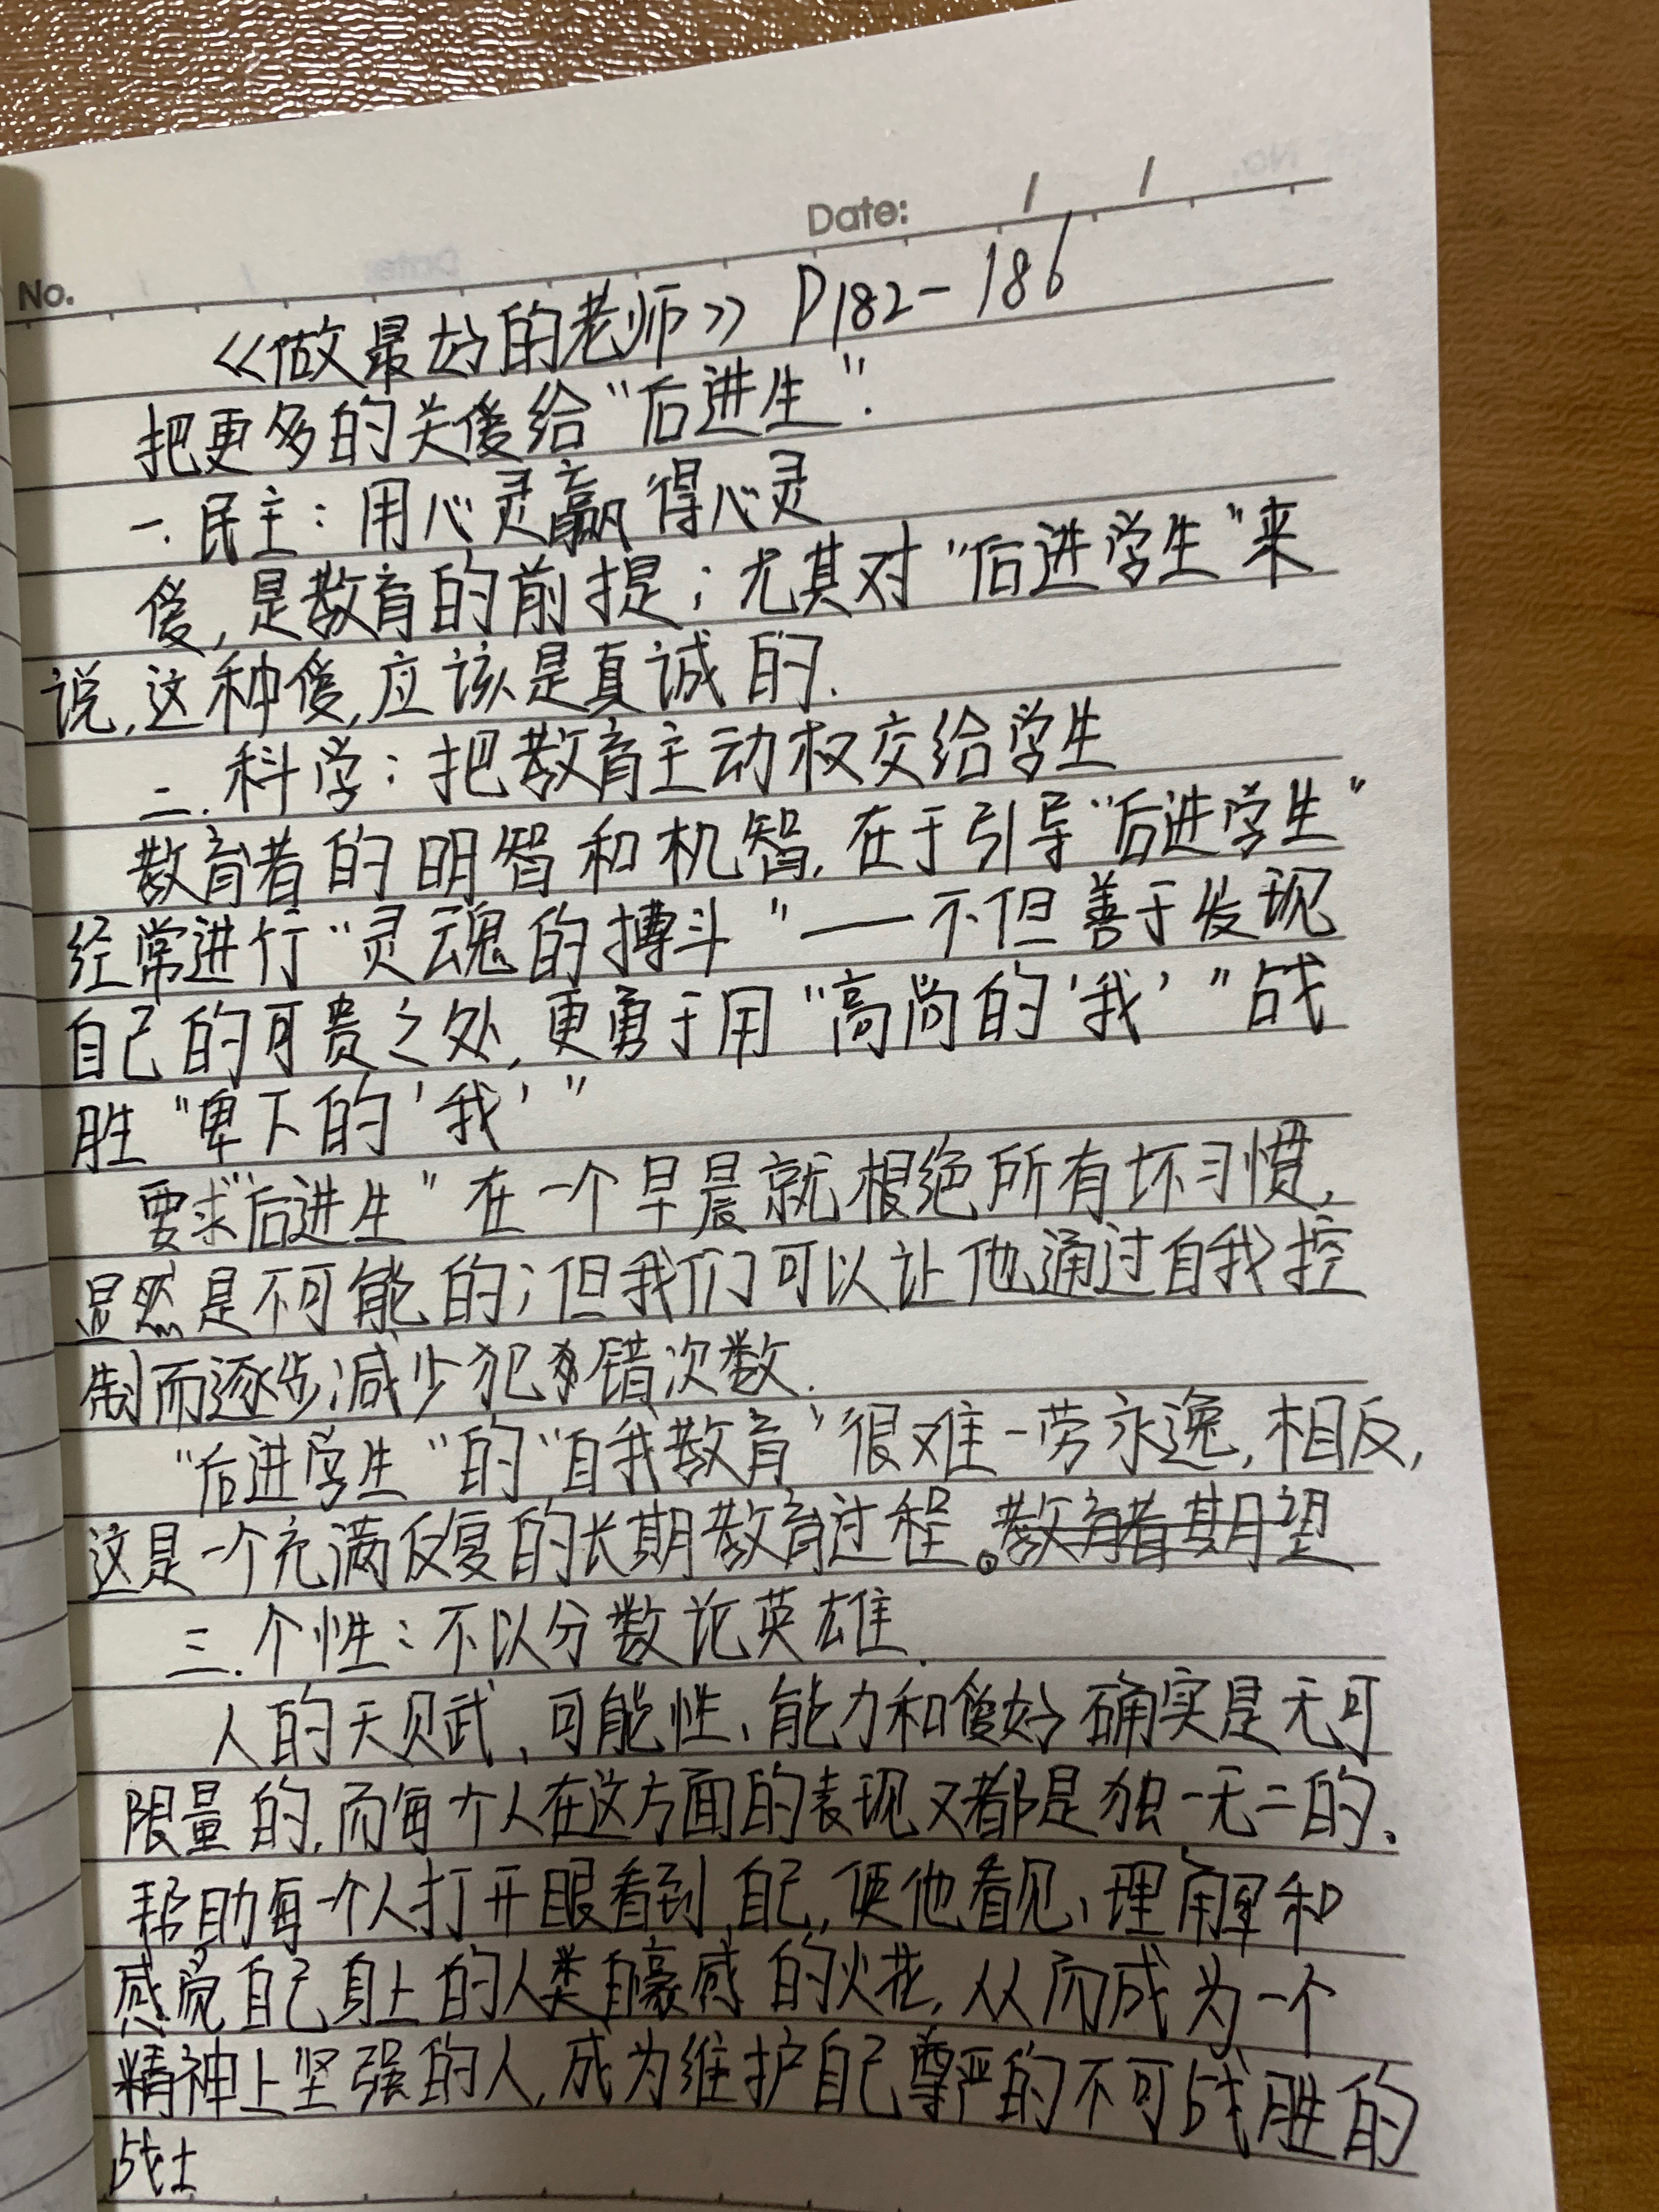 No.
Date: / /
《做最好的老师》 P182-186
把更多的关爱给“后进生”.
一.民主：用心灵赢得心灵
爱,是教育的前提；尤其对“后进学生”来
说,这种爱,应该是真诚的.
二.科学：把教育主动权交给学生
教育者的明智和机智,在于引导“后进学生”
经常进行“灵魂的搏斗”—不但善于发现
自己的可贵之处,更勇于用“高尚的‘我’”战
胜“卑下的‘我’”
要求“后进生”在一个早晨就根绝所有坏习惯,
显然是不可能的；但我们可以让他通过自我控
制而逐步减少犯错次数.
“后进学生”的“自我教育”很难一劳永逸,相反,
这是一个充满反复的长期教育过程。教育者期望
三.个性：不以分数论英雄.
人的天赋、可能性、能力和爱好确实是无可
限量的,而每个人在这方面的表现又都是独一无二的.
帮助每一个人打开眼看到自己,使他看见、理解和
感觉自己身上的人类自豪感的火花,从而成为一个
精神上坚强的人,成为维护自己尊严的不可战胜的
战士